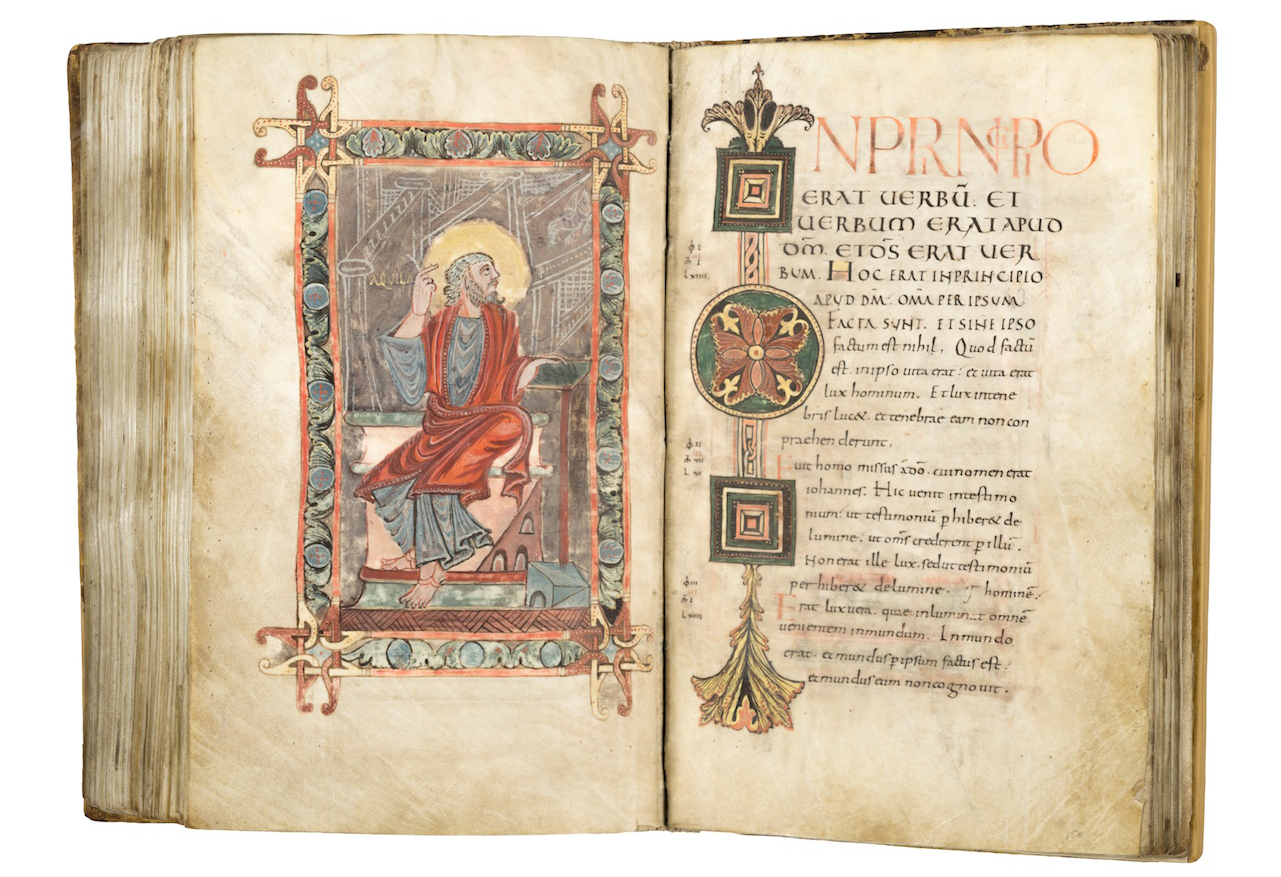 AQUILA
INPRINCIPIO
ERAT UERBŪ. ET
UERBUM ERAT APUD
DM̄. ET DS̄ ERAT UER
BUM. HOC ERAT INPRINCIPIO
APUD DM̄. OMA PER IPSUM
FACTA SUNT. ET SINE IPSO
factum est nihil, Quod factū
est. inipso uita erat: et uita erat
lux hominum. Et lux intene
bris luc&. et tenebrae eam non con
praehenderunt,
Fuit homo missus ado. cui nomen erat
iohannes. Hic uenit intestimo
nium: ut testimoniū phiber& de
lumine. ut oms crederent p illū.
Non erat ille lux. sed ut testimoniū
perhiber& de lumine. hominē.
Erat lux uera. quae inluminat omnē
uenientem inmundum. In mundo
erat. et mundus p ipsum factus est:
et mundus eum non cognouit.